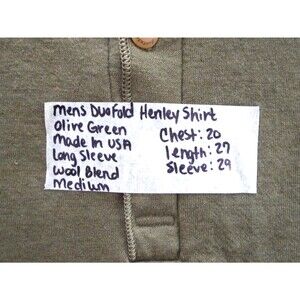 Mens Duofold Henley Shirt
Olive Green
Made In USA
Long Sleeve
Wool Blend
Medium
Chest: 20
length: 27
Sleeve: 29